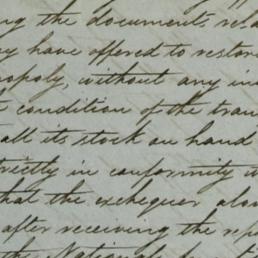 ng the documents rela
ey have offered to restor
nopoly, without any in
t condition of the tran
all its stock on hand
trictly in conformity w
that the exchequer alon
after receiving the rep
the National